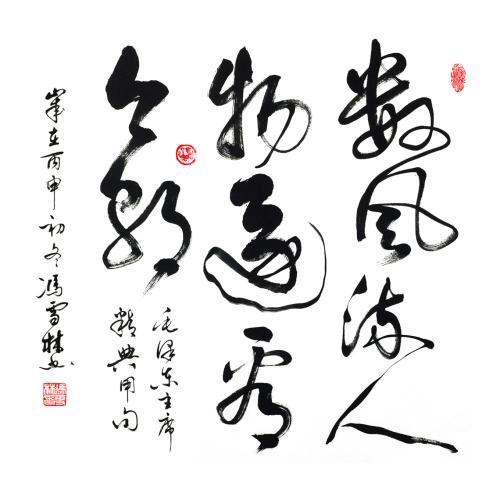 数风流人
物还看
今朝
毛泽东主席
精典用句
岁在丙申初冬冯雪林书